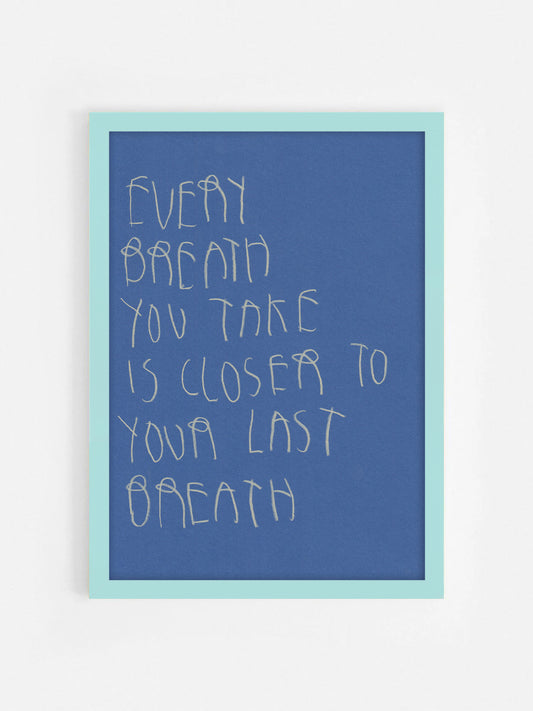 EVERY
BREATH
YOU TAKE
IS CLOSER TO
YOUR LAST
BREATH